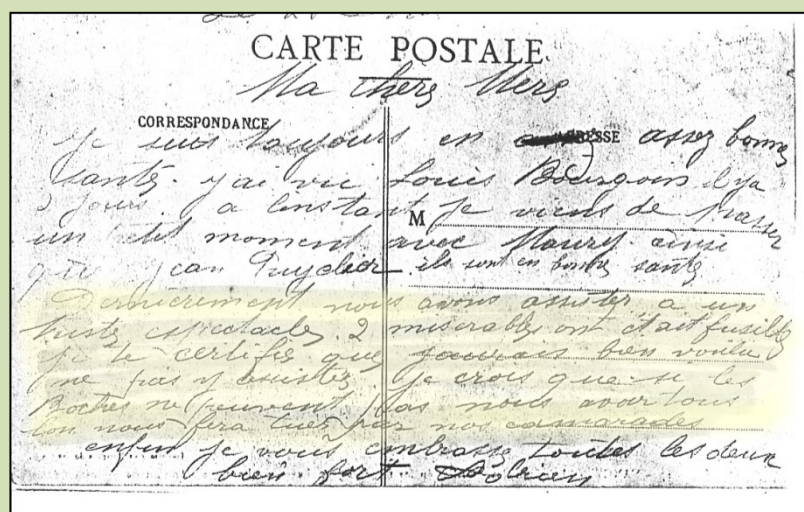 CARTE POSTALE
Ma chere Mere
CORRESPONDANCE
ADRESSE
M
je suis toujours en assez bonne
santé. j'ai vu Louis Bourgoin il y a
jours. a linstant je viens de passer
un petit moment avec Maury ainsi
que Jean Puydier ils sont en bonne santé
Dernièrement nous avons assister a un
triste espectacle. 2 miserables ont était fusillé
je te certifie que jaurais bien voulu
ne pas y assister. je crois que si les
Boches ne peuvent pas nous avoir tous
lon nous fera tuer par nos camarades
enfin je vous embrasse toutes les deux
bien fort